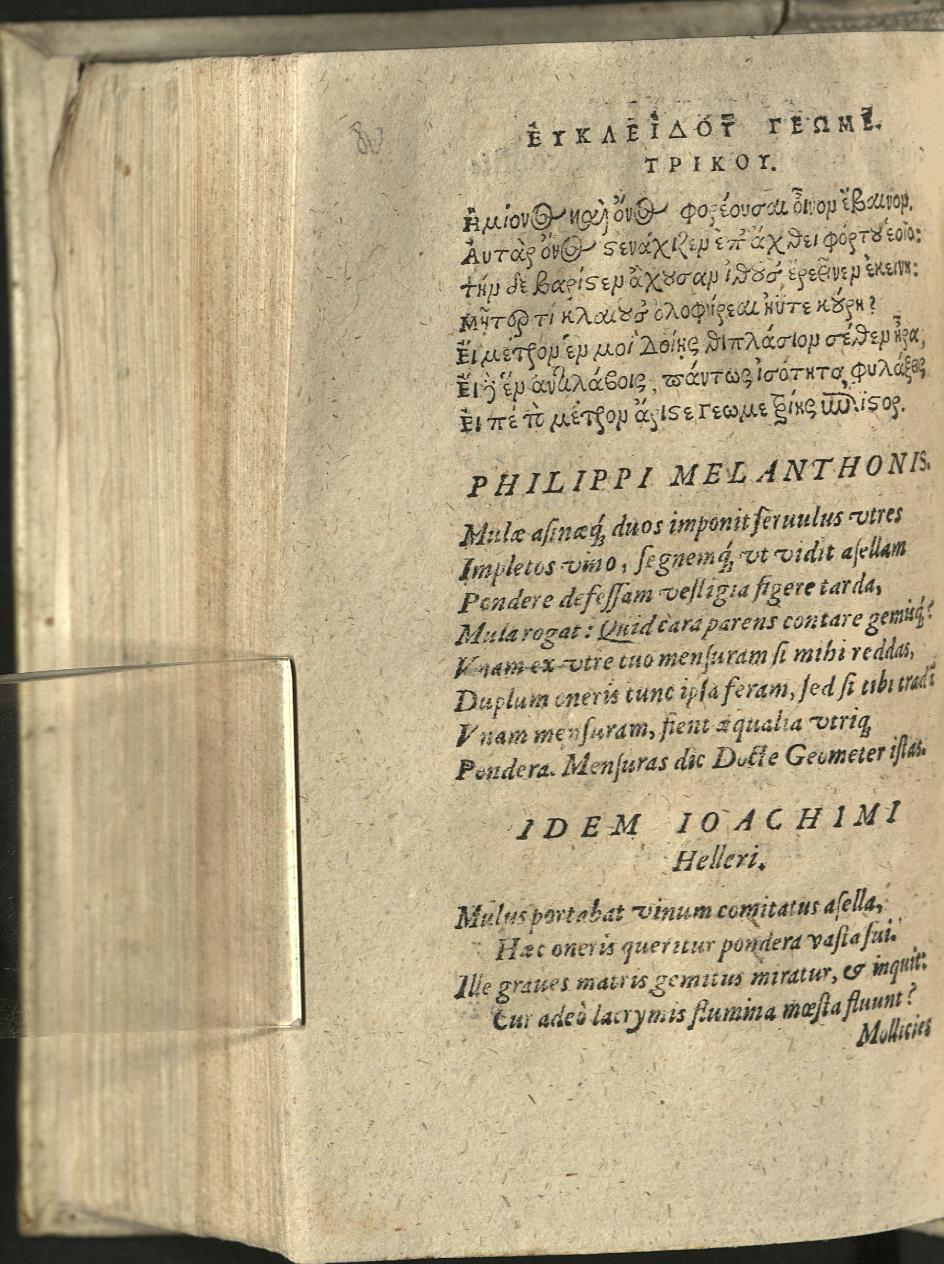 ἘΥΚΛΕΊΔΟΥ͂ ΓΕΩΜΕ-
ΤΡΙΚΟΥ.
Ἡμίονος καὶ ὄνος φορέουσαι οἶνον ἔβαινον.
Ἀυτὰρ ὄνος στενάχιζεν ἐπ' ἄχθει φόρτου ἑοῖο:
τὴν δὲ βαρύστεν ἄχουσαν ἰδοῦσ' ἐρέεινεν ἐκείνη:
Μῆτερ τί κλαίουσ' ὀλοφύρεαι ἠΰτε κούρη?
Ἐι μέτρον ἕν μοι δοίης διπλάσιον σέθεν ἦρα,
Ἐι δ' ἕν ἀντιλάβοις, πάντως ἰσότητα φυλάξεις
Ἐιπέ τὸ μέτρον ἄριστε γεωμετρίης
PHILIPPI MELANTHONIS.
Mulæ asinæq́; duos imponit seruulus vtres
Impletos vino, segnemq́; vt vidit asellam
Pondere defessam vestigia figere tarda,
Mula rogat: Quid cara parens contare gemisq́;?
Vnam ex vtre tuo mensuram si mihi reddas,
Duplum oneris tunc ipsa feram, sed si tibi tradā
Vnam mensuram, fient æqualia vtriq;
Pondera. Mensuras dic Docte Geometer istas.
IDEM IOACHIMI
Helleri.
Mulus portabat vinum comitatus asella,
Hæc oneris queritur pondera vasta sui.
Ille graues matris gemitus miratur, & inquit:
Cur adeò lacrymis flumina mœsta fluunt?
Mollicies